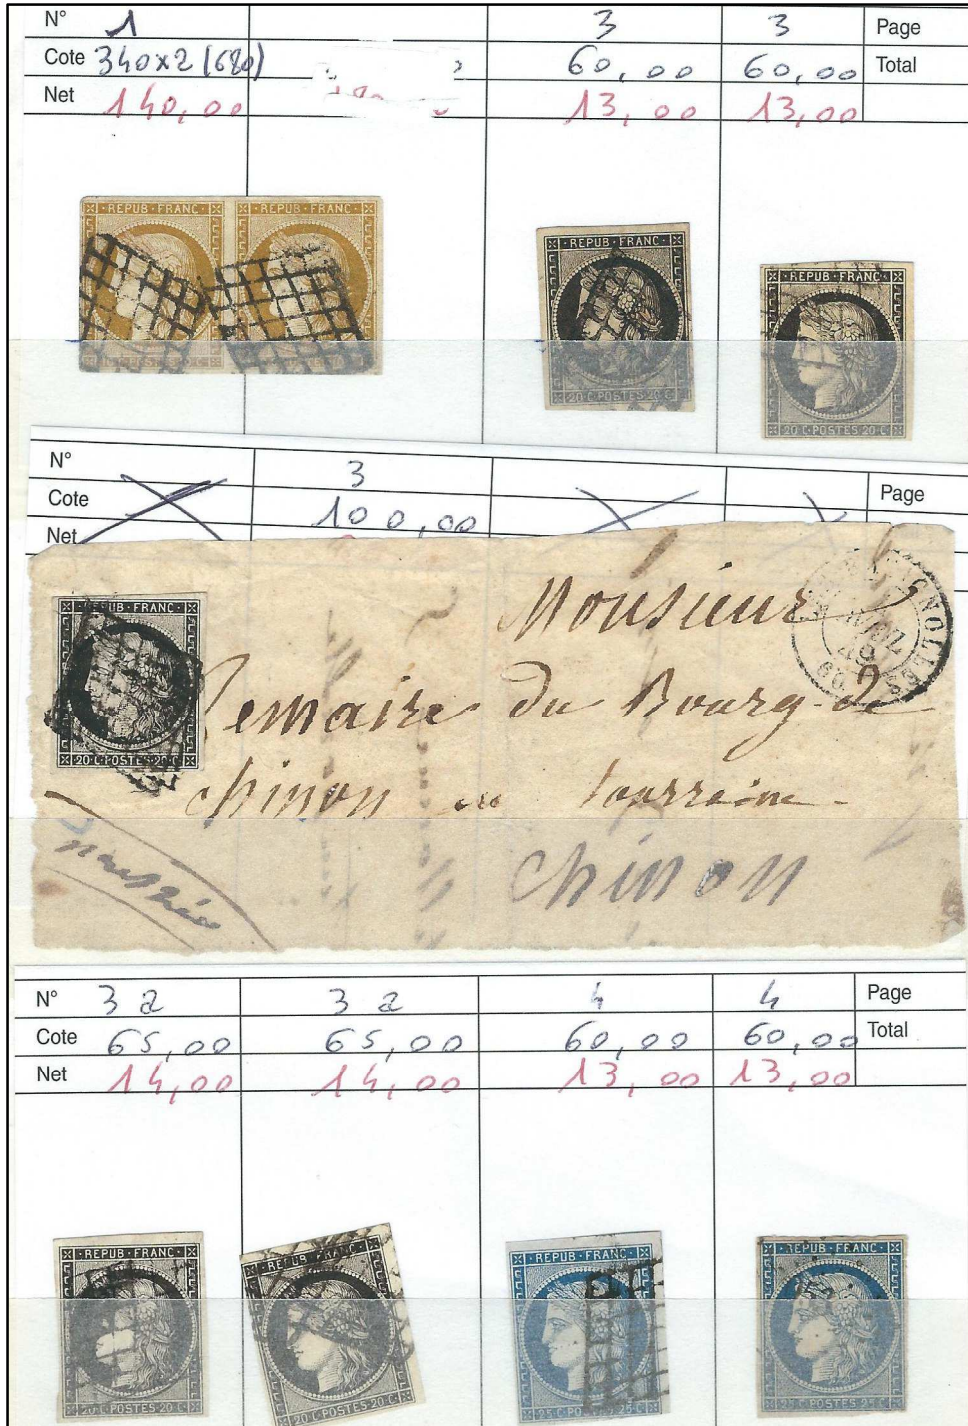 N° 1 3 3 Page
Cote 340x2 (680) 60,00 60,00 Total
Net 140,00 13,00 13,00
REPUB·FRANC· REPUB·FRANC·
·REPUB·FRANC·
·REPUB·FRANC·
20·C·POSTES·20·C·
20·C·POSTES·20·C·
N° 3
Cote 100,00 Page
Net
·REPUB·FRANC·
20·C·POSTES·20·C·
Monsieur
Lemaire du Bourg-de
Chinon en tourraine -
Chinon
49
60
N° 3a 3a 4 4 Page
Cote 65,00 65,00 60,00 60,00 Total
Net 14,00 14,00 13,00 13,00
·REPUB·FRANC· ·REPUB·FRANC· ·REPUB·FRANC· ·REPUB·FRANC·
20·C·POSTES·20·C· 20·C·POSTES·20·C· 25·C·POSTES·25·C· 25·C·POSTES·25·C·